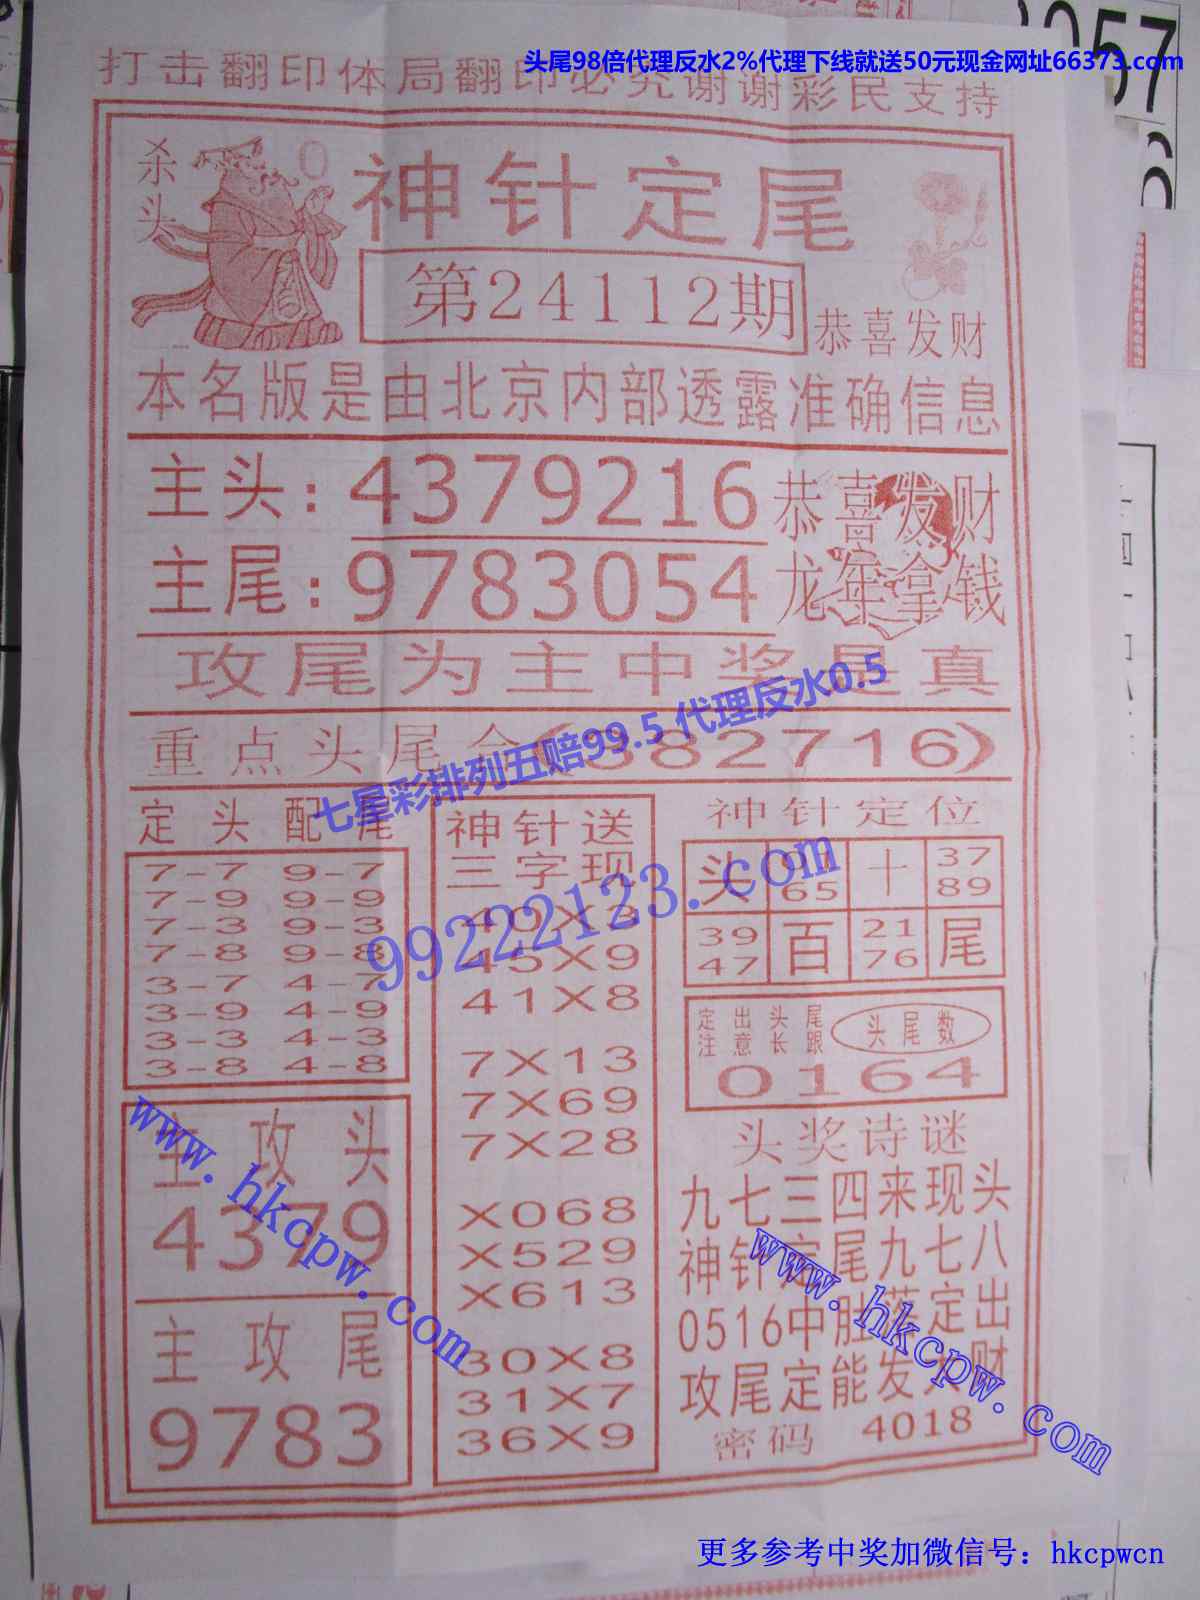 头尾98倍代理反水2%代理下线就送50元现金网址66373.com
打击翻印体局翻印必究谢谢彩民支持
杀头
0
神针定尾
第24112期
恭喜发财
本名版是由北京内部透露准确信息
主头:4379216
恭喜发财
主尾:9783054
龙年拿钱
攻尾为主中奖是真
重点头尾合(382716)
七星彩排列五赔99.5 代理反水0.5
定头配尾
7-7 9-7
7-9 9-9
7-3 9-3
7-8 9-8
3-7 4-7
3-9 4-9
3-3 4-3
3-8 4-8
主攻头
4379
主攻尾
9783
神针送
三字现
40X3
45X9
41X8
7X13
7X69
7X28
X068
X529
X613
30X8
31X7
36X9
99222123.com
神针定位
头 65 十 37 89
39 47 百 21 76 尾
定出头尾
注意长跟
头尾数
0164
头奖诗谜
九七三四来现头
神针定尾九七八
0516中胜落定出
攻尾定能发大财
密码 4018
www.hkcpw.com
www.hkcpw.com
更多参考中奖加微信号：hkcpwcn